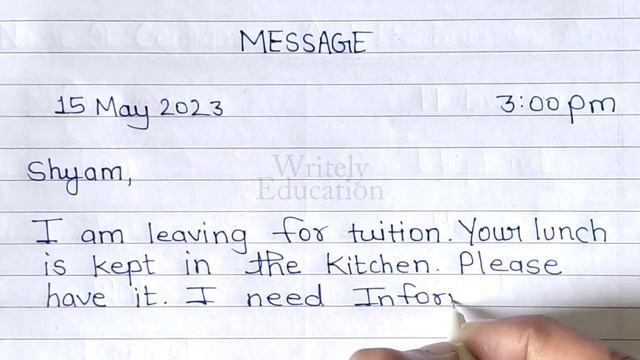 MESSAGE
15 May 2023 3:00pm
Shyam,
Writely
Education
I am leaving for tuition. Your lunch
is kept in the kitchen. Please
have it. I need Infor